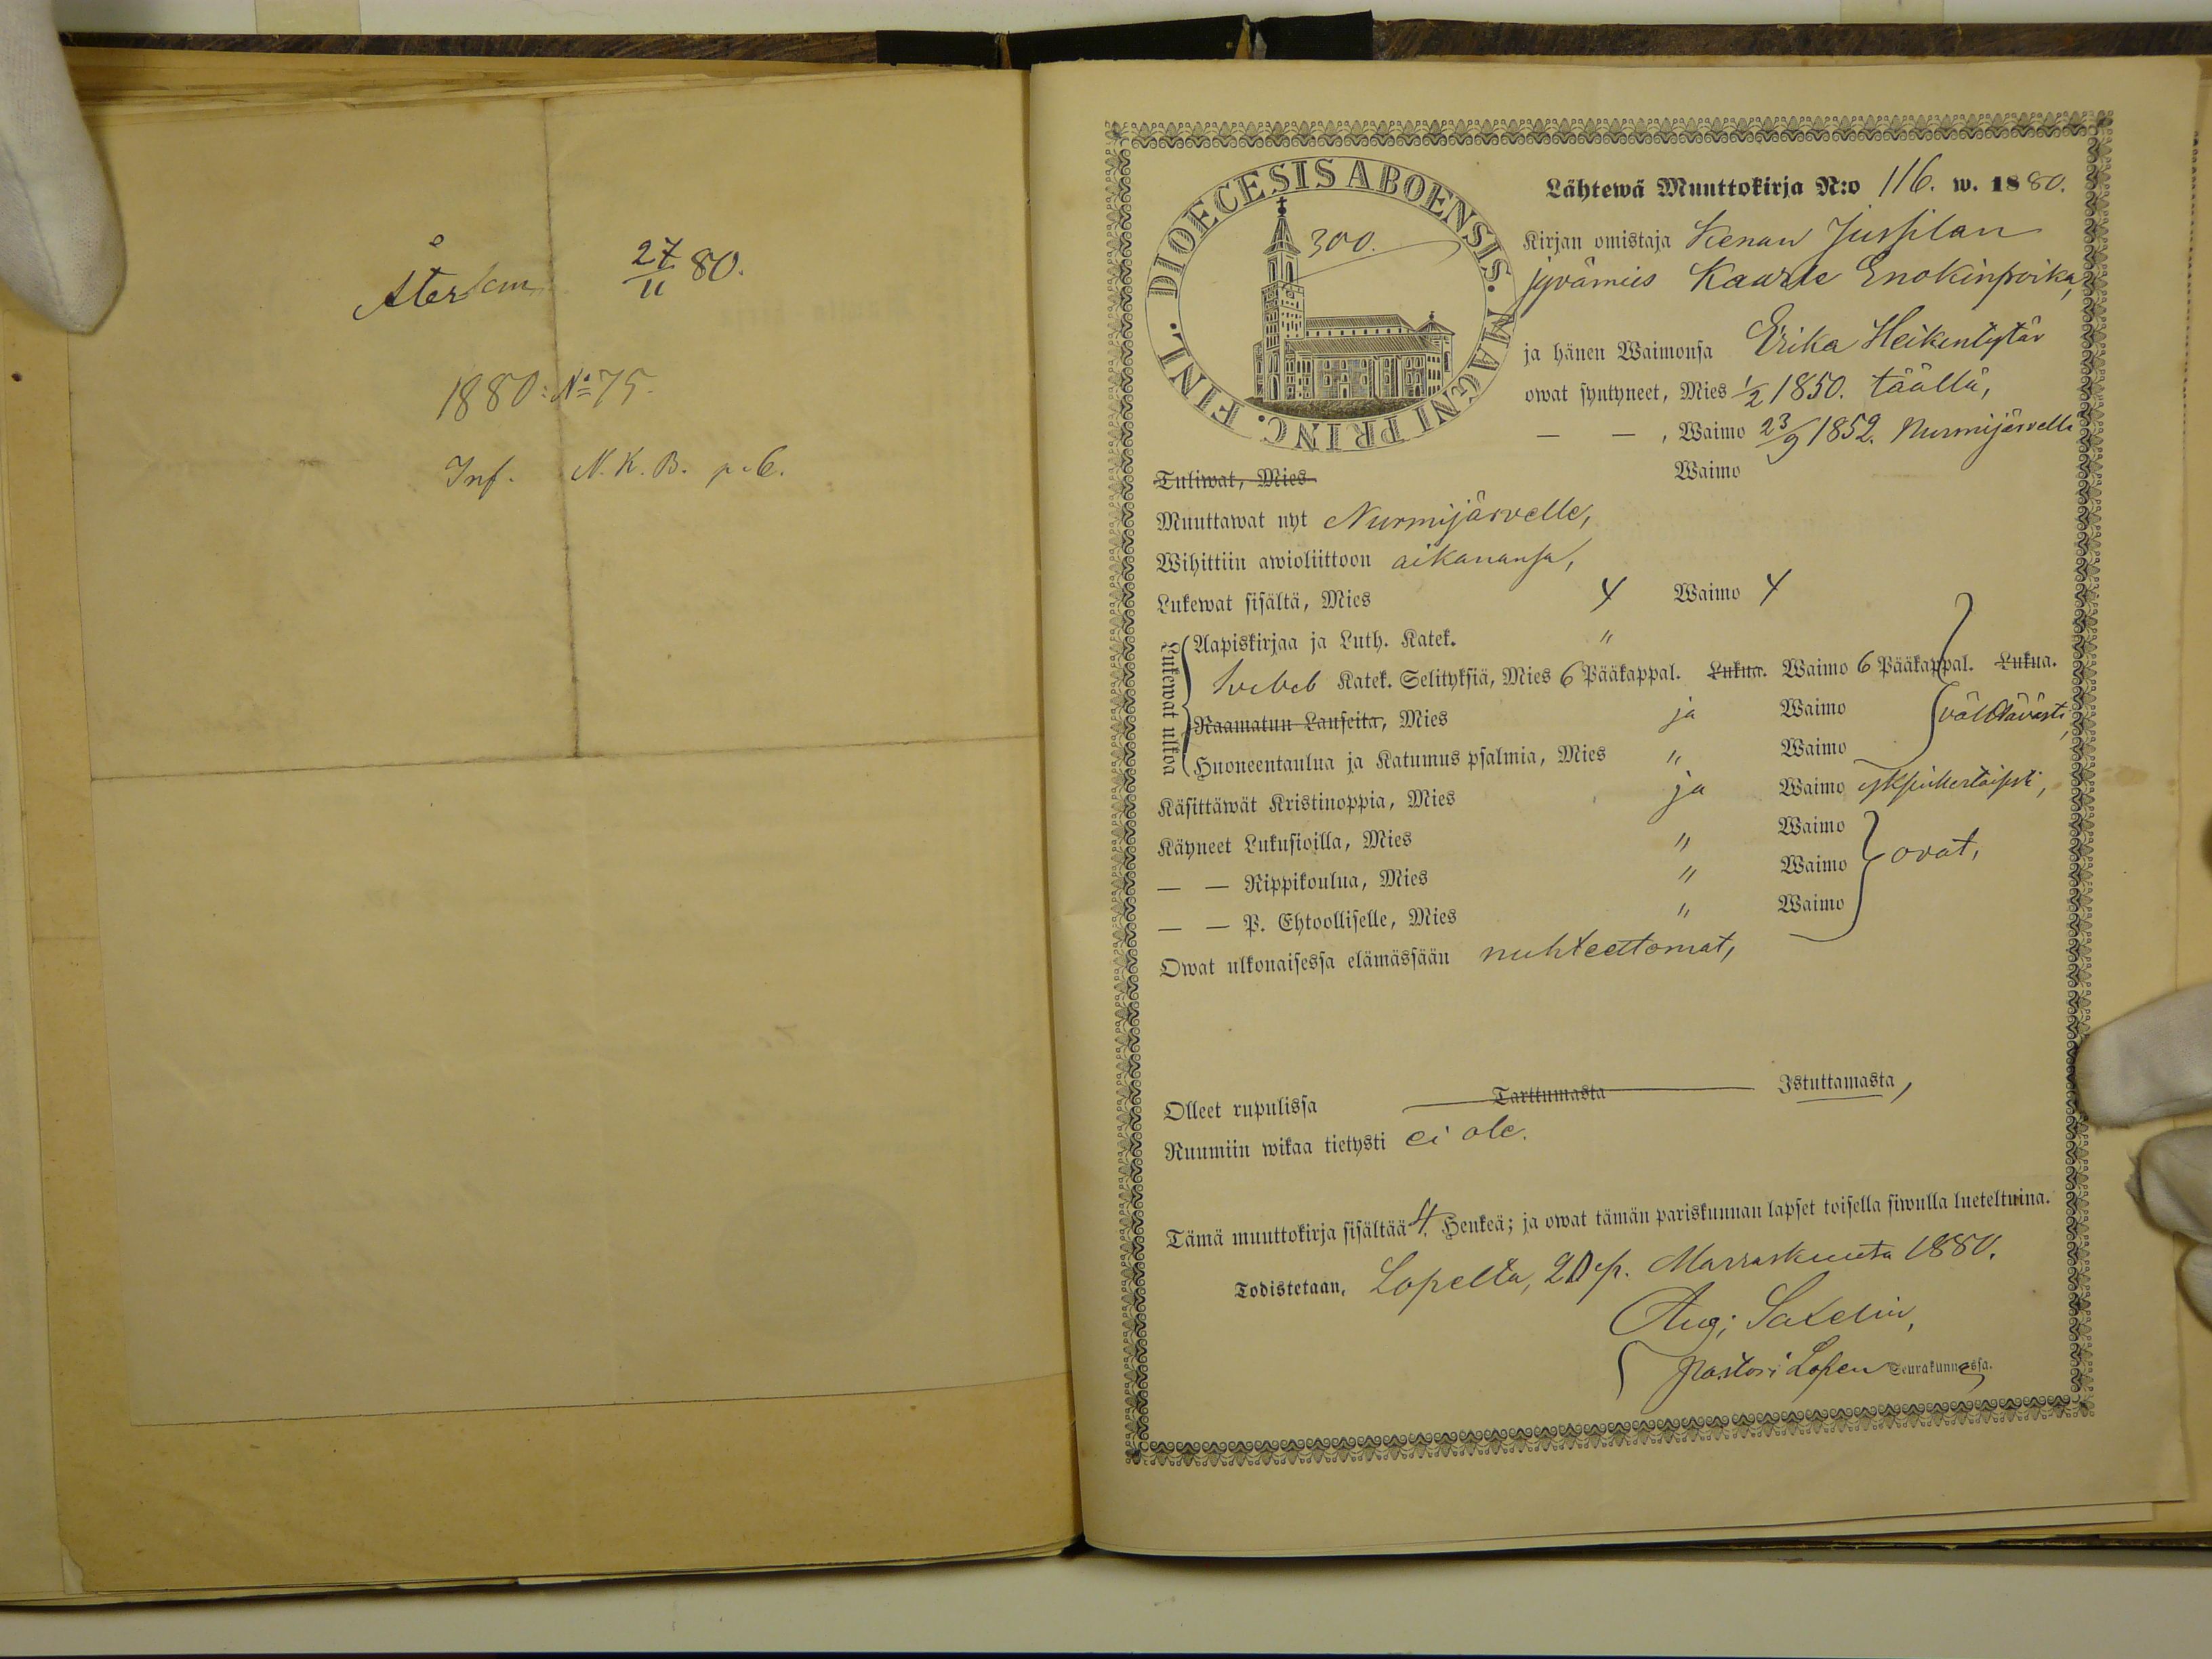 27/11 80.
1880: No 75.
Inf. N. K. B. p. 6.
DIOECESIS ABOENSIS. MAGNI PRINC. FINL.
300.
Lähtewä Muuttokirja N:o 116. w. 1880.
Kirjan omistaja Kenan Jussilan
jyvämies Kaarle Enokinpoika,
ja hänen Waimonsa Erika Heikentytär
owat syntyneet, Mies 1/2 1850. täällä,
— — , Waimo 23/9 1852. Nurmijärvellä
Tuliwat, Mies Waimo
Muuttawat nyt Nurmijärvelle,
Wihittiin awioliittoon aikanansa,
Lukewat sisältä, Mies 4 Waimo 4
Lukewat ulkoa
Aapiskirjaa ja Luth. Katek. "
Svebeb Katek. Selityksiä, Mies 6 Pääkappal. Lukua. Waimo 6 Pääkappal. Lukua.
Raamatun Lauseita, Mies ja Waimo välttävästi,
Huoneentaulua ja Katumus psalmia, Mies " Waimo
Käsittäwät Kristinoppia, Mies ja Waimo yksinkertaisesti,
Käyneet Lukusioilla, Mies " Waimo
— — Rippikoulua, Mies " Waimo ovat,
— — P. Ehtoolliselle, Mies " Waimo
Owat ulkonaisessa elämässään nuhteettomat,
Olleet rupulissa Tarttumasta Istuttamasta,
Ruumiin wikaa tietysti ei ole.
Tämä muuttokirja sisältää 4. Henkeä; ja owat tämän pariskunnan lapset toisella siwulla lueteltuina.
Todistetaan, Lopelta, 20 p. Marraskuuta 1880.
Aug; Saxelin,
Pastori Lopen Seurakunnassa.